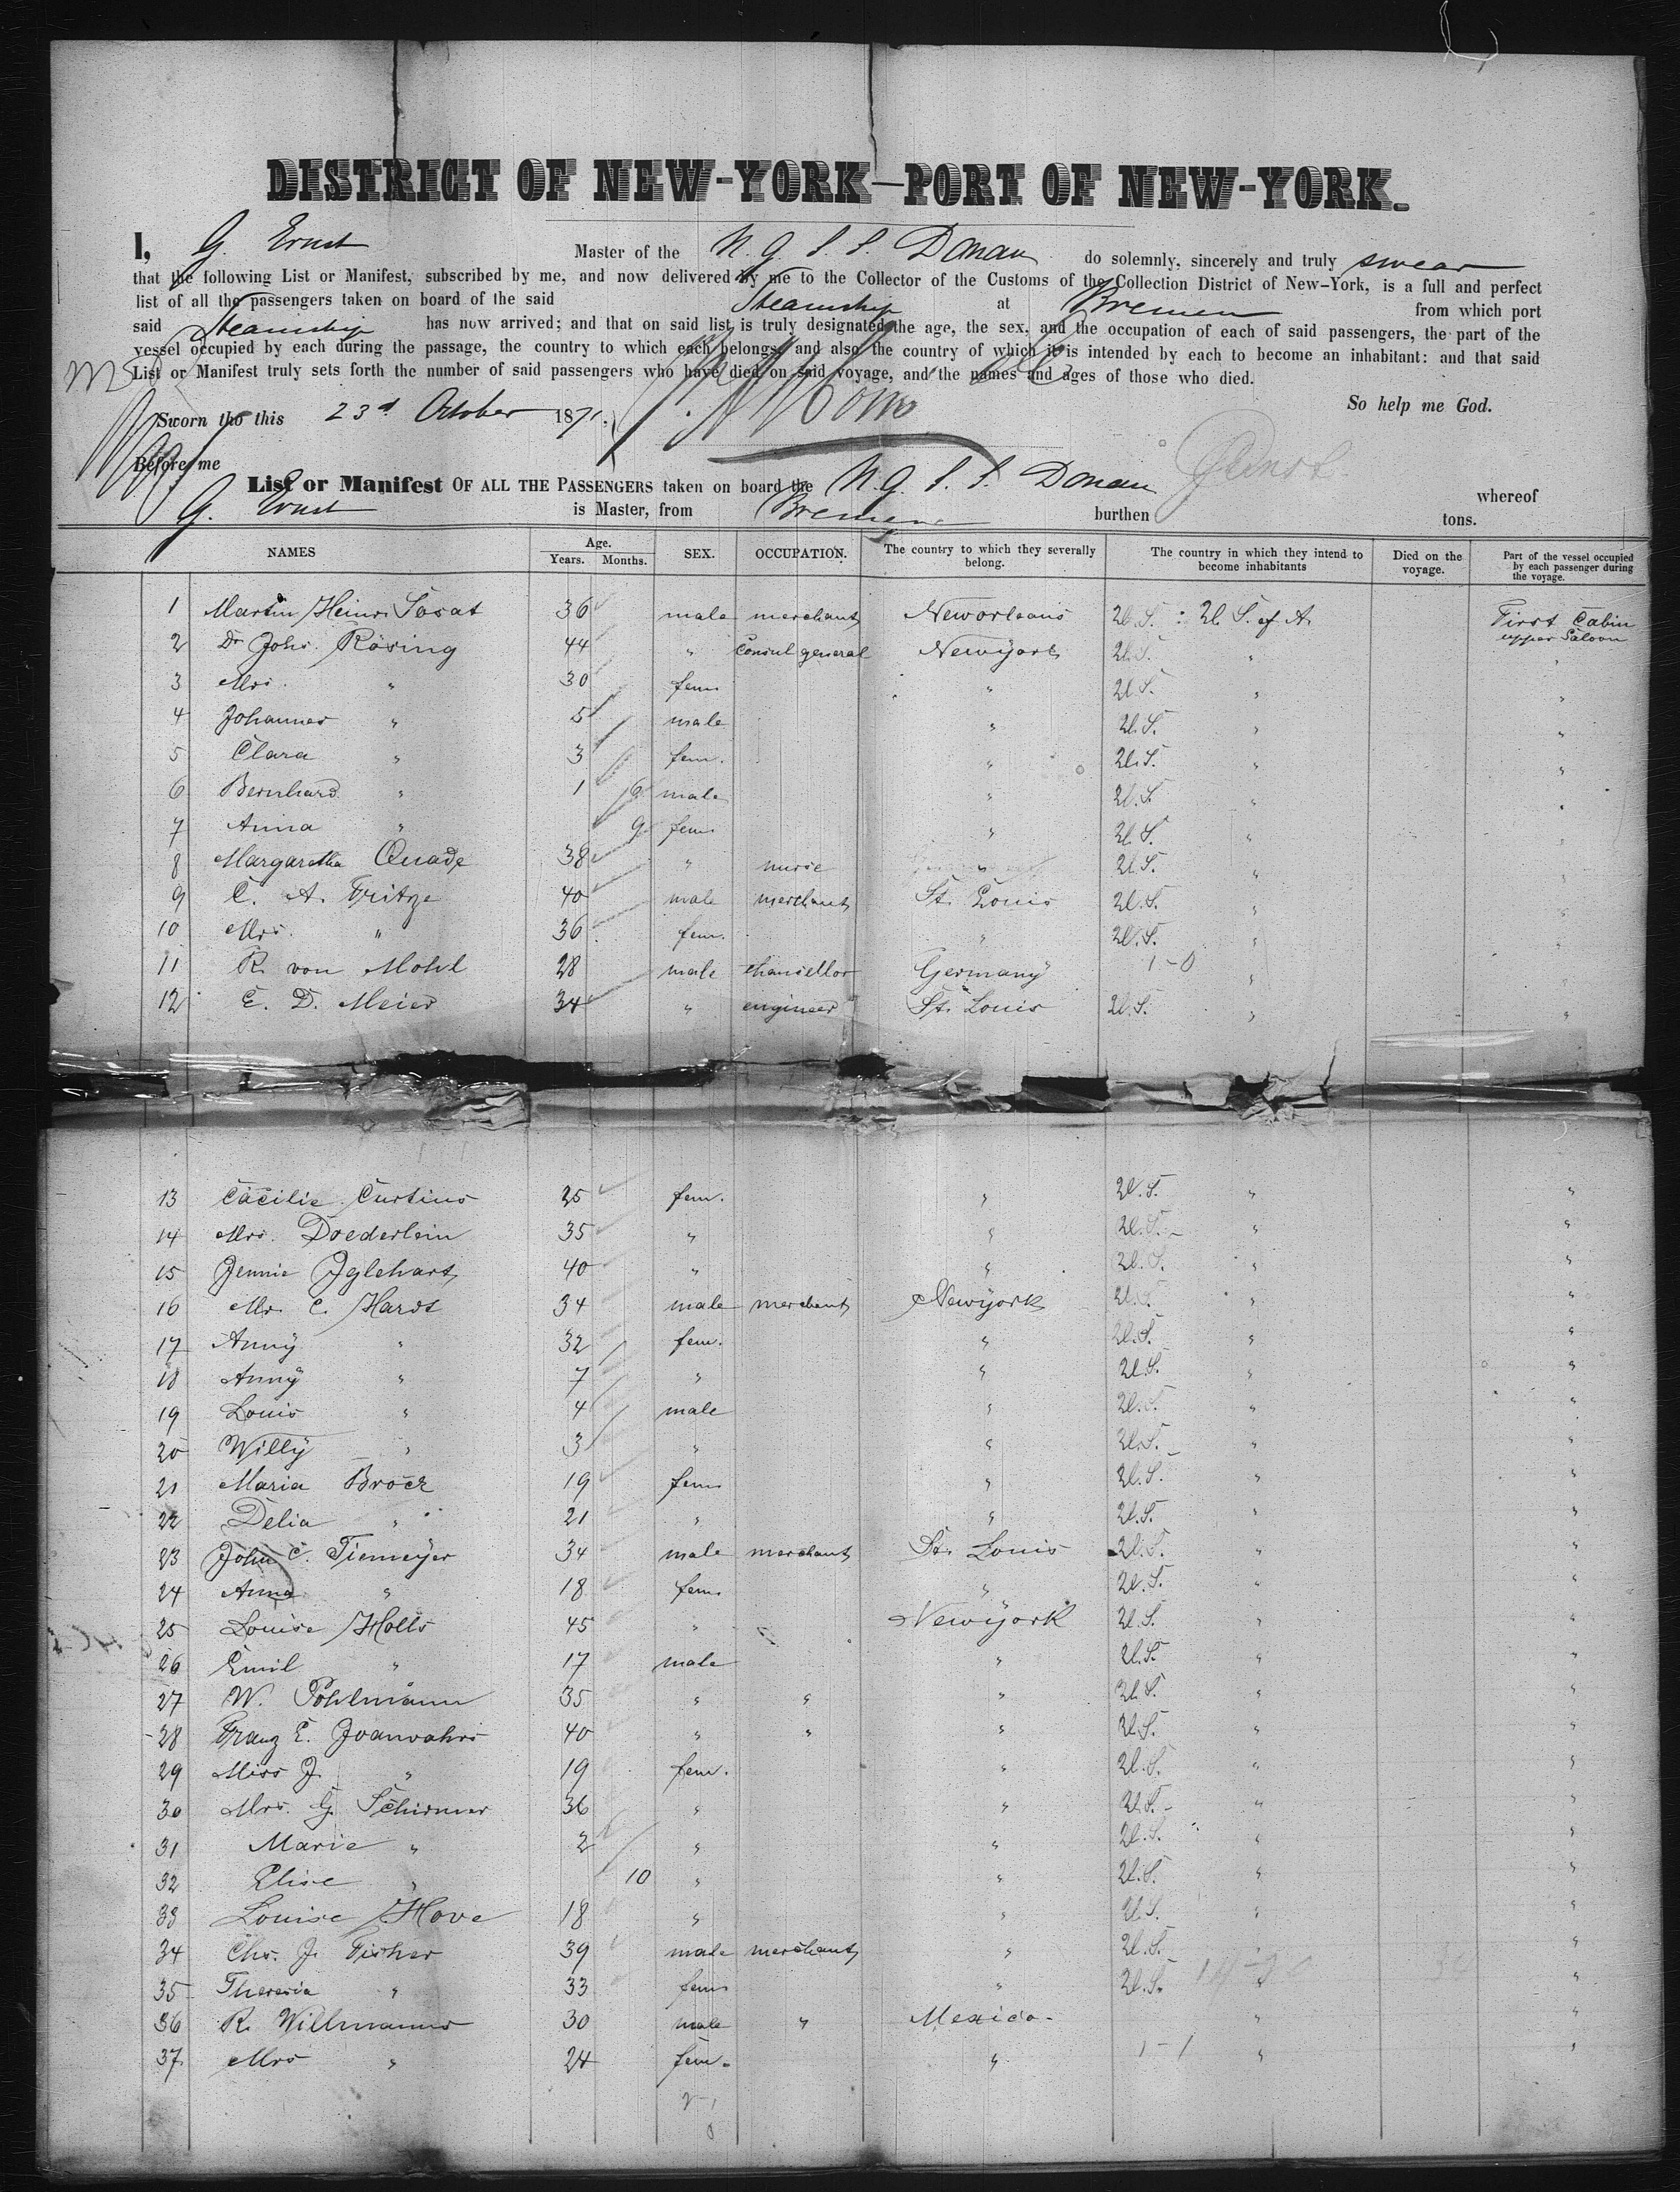 DISTRICT OF NEW-YORK—PORT OF NEW-YORK.
I, G. Ernst Master of the N. G. S. S. Donau do solemnly, sincerely and truly swear
that the following List or Manifest, subscribed by me, and now delivered by me to the Collector of the Customs of the Collection District of New-York, is a full and perfect
list of all the passengers taken on board of the said Steamship at Bremen from which port
said Steamship has now arrived; and that on said list is truly designated the age, the sex, and the occupation of each of said passengers, the part of the
vessel occupied by each during the passage, the country to which each belongs, and also the country of which it is intended by each to become an inhabitant: and that said
List or Manifest truly sets forth the number of said passengers who have died on said voyage, and the names and ages of those who died.
Sworn tho this 23d October 1871. So help me God.
Before me
List or Manifest OF ALL THE PASSENGERS taken on board the N. G. S. S. Donau whereof
G. Ernst is Master, from Bremen burthen tons.
NAMES Age. Years. Months. SEX. OCCUPATION. The country to which they severally belong. The country in which they intend to become inhabitants Died on the voyage. Part of the vessel occupied by each passenger during the voyage.
1 Martin Heinr. Sosat 36 male merchant New orleans U. S. : U. S. of A. First Cabin upper Saloon
2 Dr Johs. Rösing 44 " Consul general Newyork U. S. " "
3 Mrs. " 30 fem " U. S. " "
4 Johannes " 5 male " U. S. " "
5 Clara " 3 fem. " U. S. " "
6 Bernhard " 1 male " U. S. " "
7 Anna " 9 fem " U. S. " "
8 Margaretha Quade 38 " nurse U. S. " "
9 C. A. Fritze 40 male merchant St. Louis U. S. " "
10 Mrs. " 36 fem. " U. S. " "
11 R. von Mohl 28 male chancellor Germany 1-0 " "
12 E. D. Meier 34 " engineer St. Louis U. S. " "
13 Cäcilie Curtius 25 fem. " U. S. " "
14 Mrs. Doederlein 35 " " U. S. " "
15 Jennie Iglehart 40 " " U. S. " "
16 Mr. C. Hardt 34 male merchant Newyork U. S. " "
17 Anny " 32 fem. " U. S. " "
18 Anny " 7 " " U. S. " "
19 Louis " 4 male " U. S. " "
20 Willy " 3 " " U. S. " "
21 Maria Brock 19 fem " U. S. " "
22 Delia " 21 " " U. S. " "
23 John C. Tiemeyer 34 male merchant St. Louis U. S. " "
24 Anna " 18 fem " U. S. " "
25 Louise Holls 45 " Newyork U. S. " "
26 Emil " 17 male " U. S. " "
27 W. Pohlmann 35 " " " U. S. " "
28 Franz E. 40 " " " U. S. " "
29 Miss J. " 19 fem. " U. S. " "
30 Mrs. G. Schirmer 36 " " U. S. " "
31 Marie " 2 " " U. S. " "
32 Elise " 10 " " U. S. " "
33 Louise Hove 18 " " U. S. " "
34 Chs. J. Fisher 39 male merchant " U. S. " "
35 Theresia " 33 fem " U. S. " "
36 R. Willmanns 30 male " Mexico " "
37 Mrs " 24 fem. " 1-1 " "